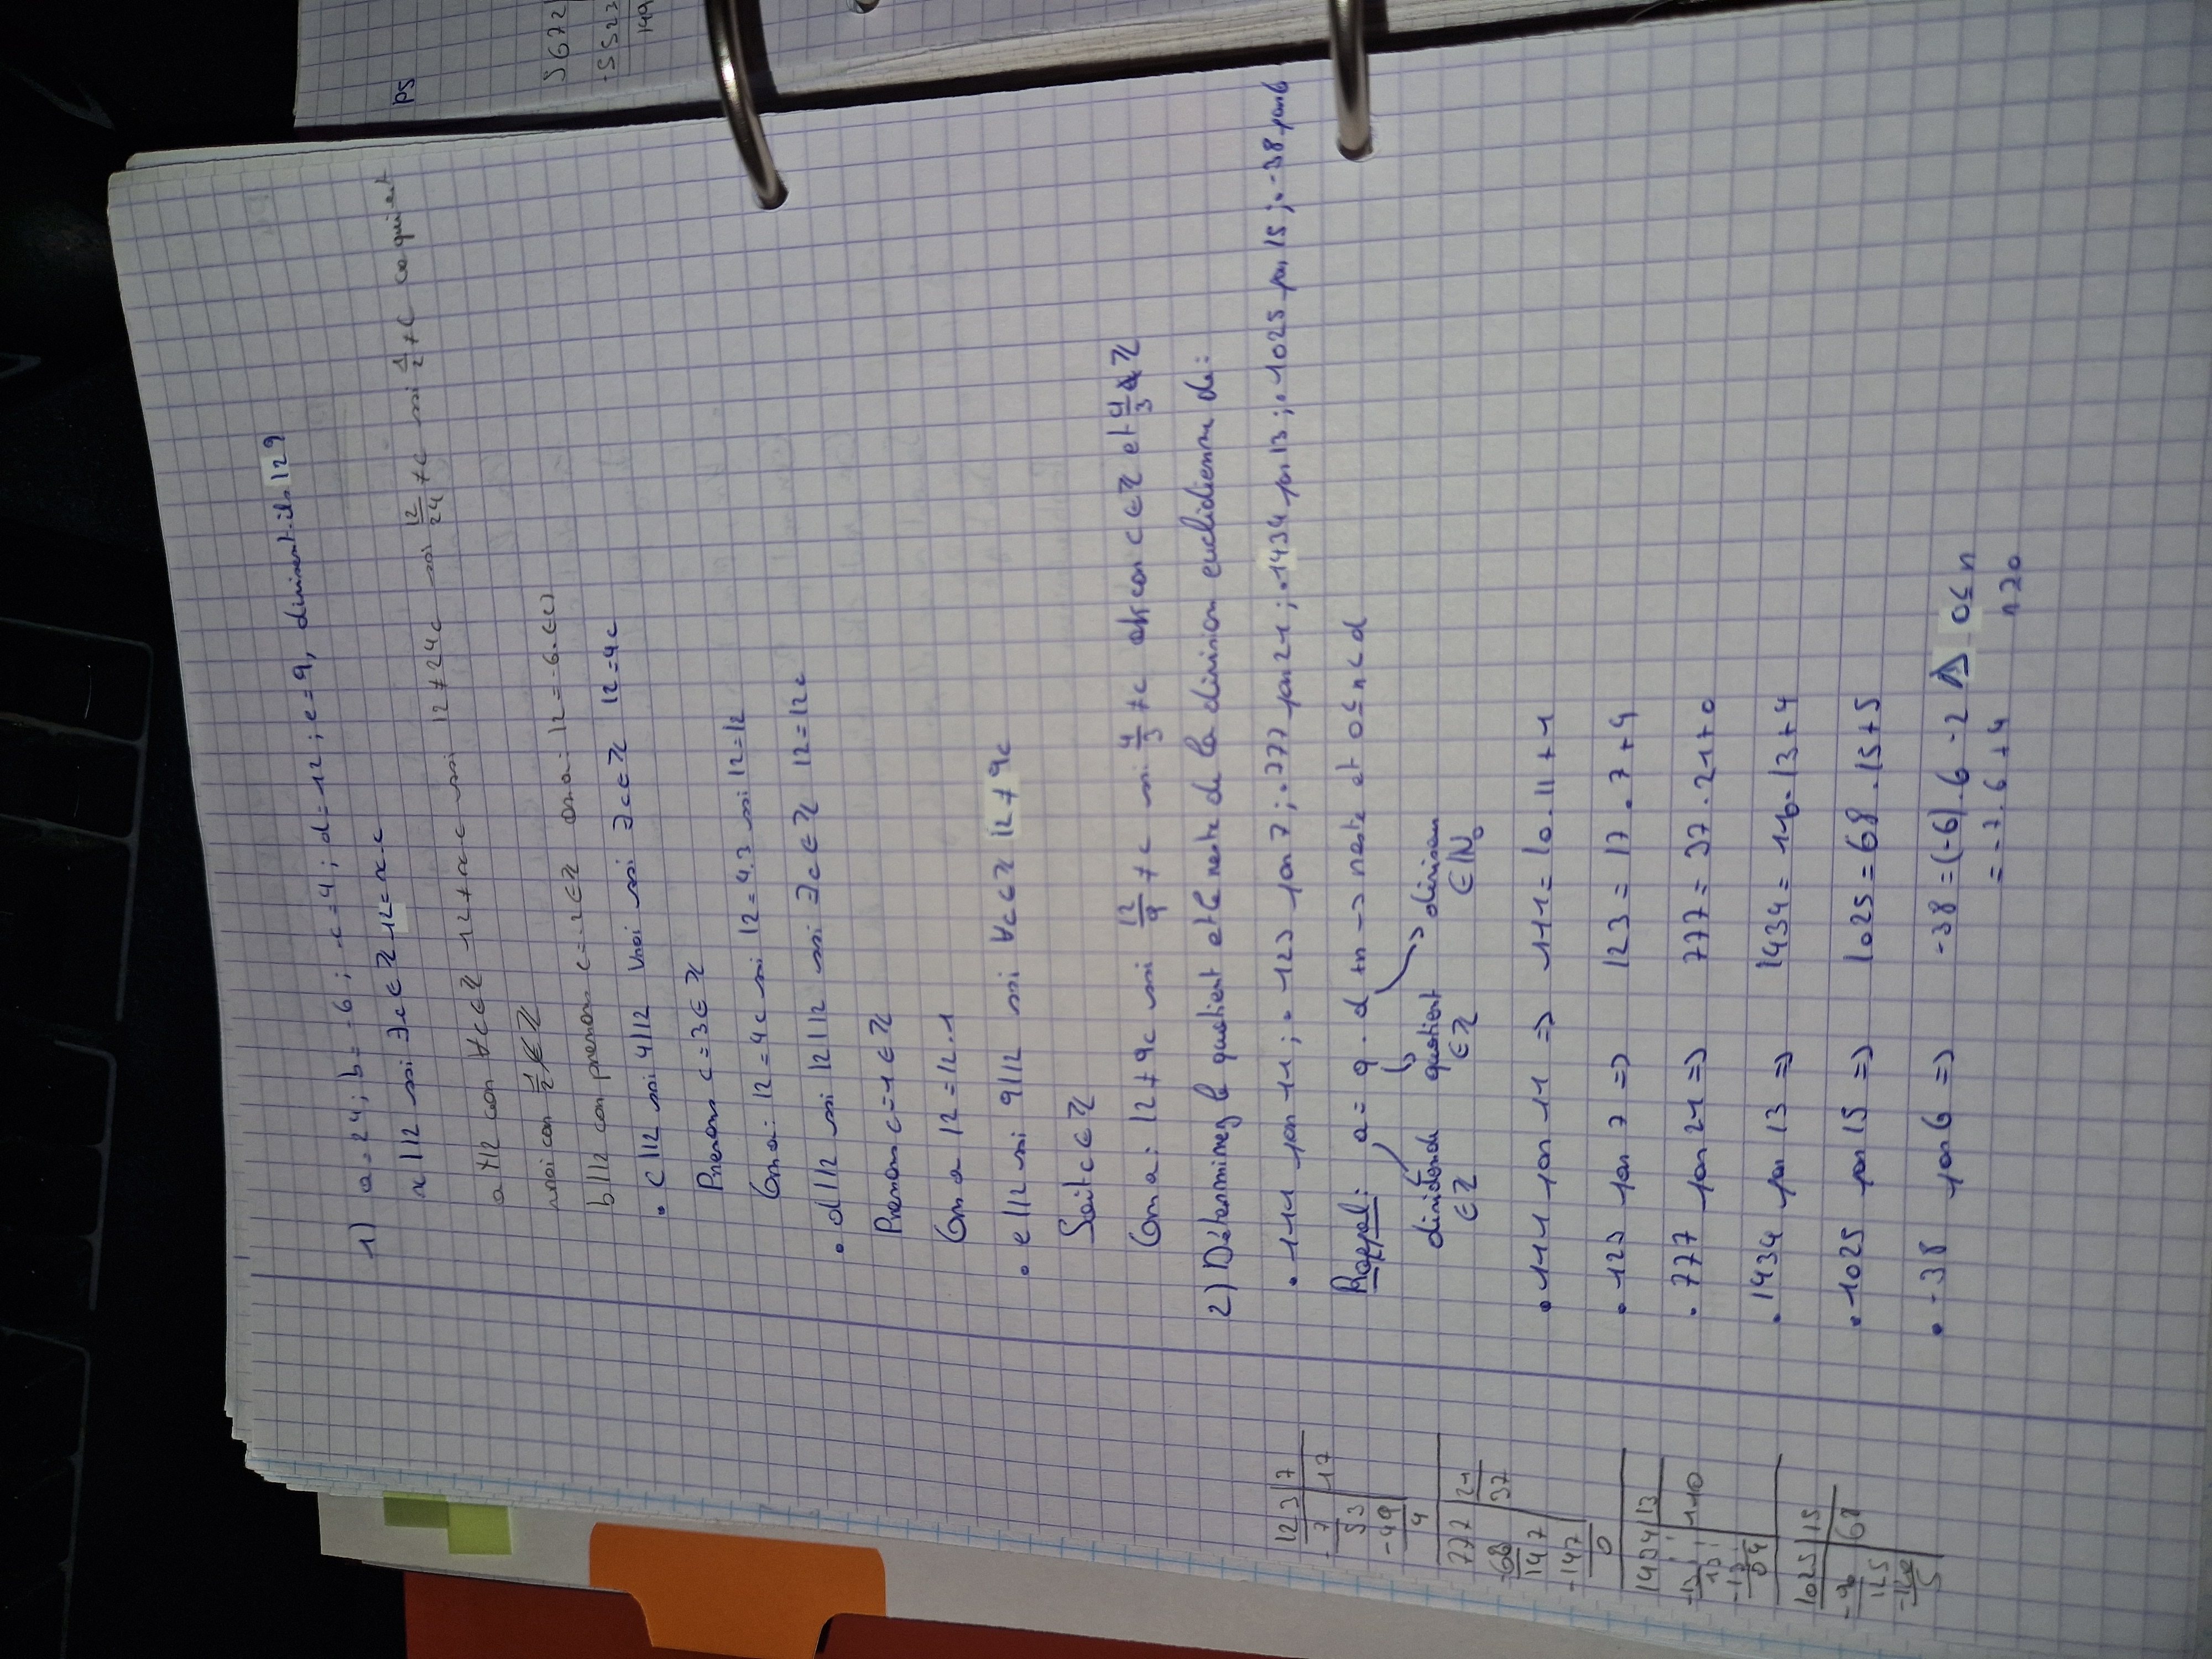 1) a=24 ; b=-6 ; c=4 ; d=12 ; e=9, divisent-ils 12 ?
x|12 ssi ∃c∈ℤ 12=x.c
a∤12 car ∀c∈ℤ 12≠x.c ssi 12≠24c ssi 12/24≠c ssi 1/2≠c ce qui est
vrai car 1/2∉ℤ
b|12 car prenons c=-2∈ℤ On a: 12=-6.(-2)
• c|12 ssi 4|12 Vrai ssi ∃c∈ℤ 12=4c
Prenons c=3∈ℤ
On a: 12=4c ssi 12=4.3 ssi 12=12
• d|12 ssi 12|12 ssi ∃c∈ℤ 12=12c
Prenons c=1∈ℤ
On a 12=12.1
• e|12 ssi 9|12 ssi ∀c∈ℤ 12≠9c
Soit c∈ℤ
On a: 12≠9c ssi 12/9≠c ssi 4/3≠c ok car c∈ℤ et 4/3∉ℤ
2) Déterminez le quotient et le reste de la division euclidienne de:
• 111 par 11 ; • 123 par 7 ; • 777 par 21 ; • 1434 par 13 ; • 1025 par 15 ; • -38 par 6
Rappel: a = q . d +r -> reste et 0≤r<d
dividende quotient diviseur
∈ℤ ∈ℤ ∈ℕ₀
• 111 par 11 => 111=10.11+1
• 123 par 7 => 123=17.7+4
• 777 par 21 => 777=37.21+0
• 1434 par 13 => 1434=110.13+4
• 1025 par 15 => 1025=68.15+5
• -38 par 6 => -38=(-6).6 -2 ⚠ 0≤r
=-7.6+4 r≥0
123|7
-7 17
53
-49
4
777|21
-63 37
147
-147
0
1434|13
-13 110
13
-13
04
1025|15
-90 68
125
-120
5
PS
5672
-5523
149